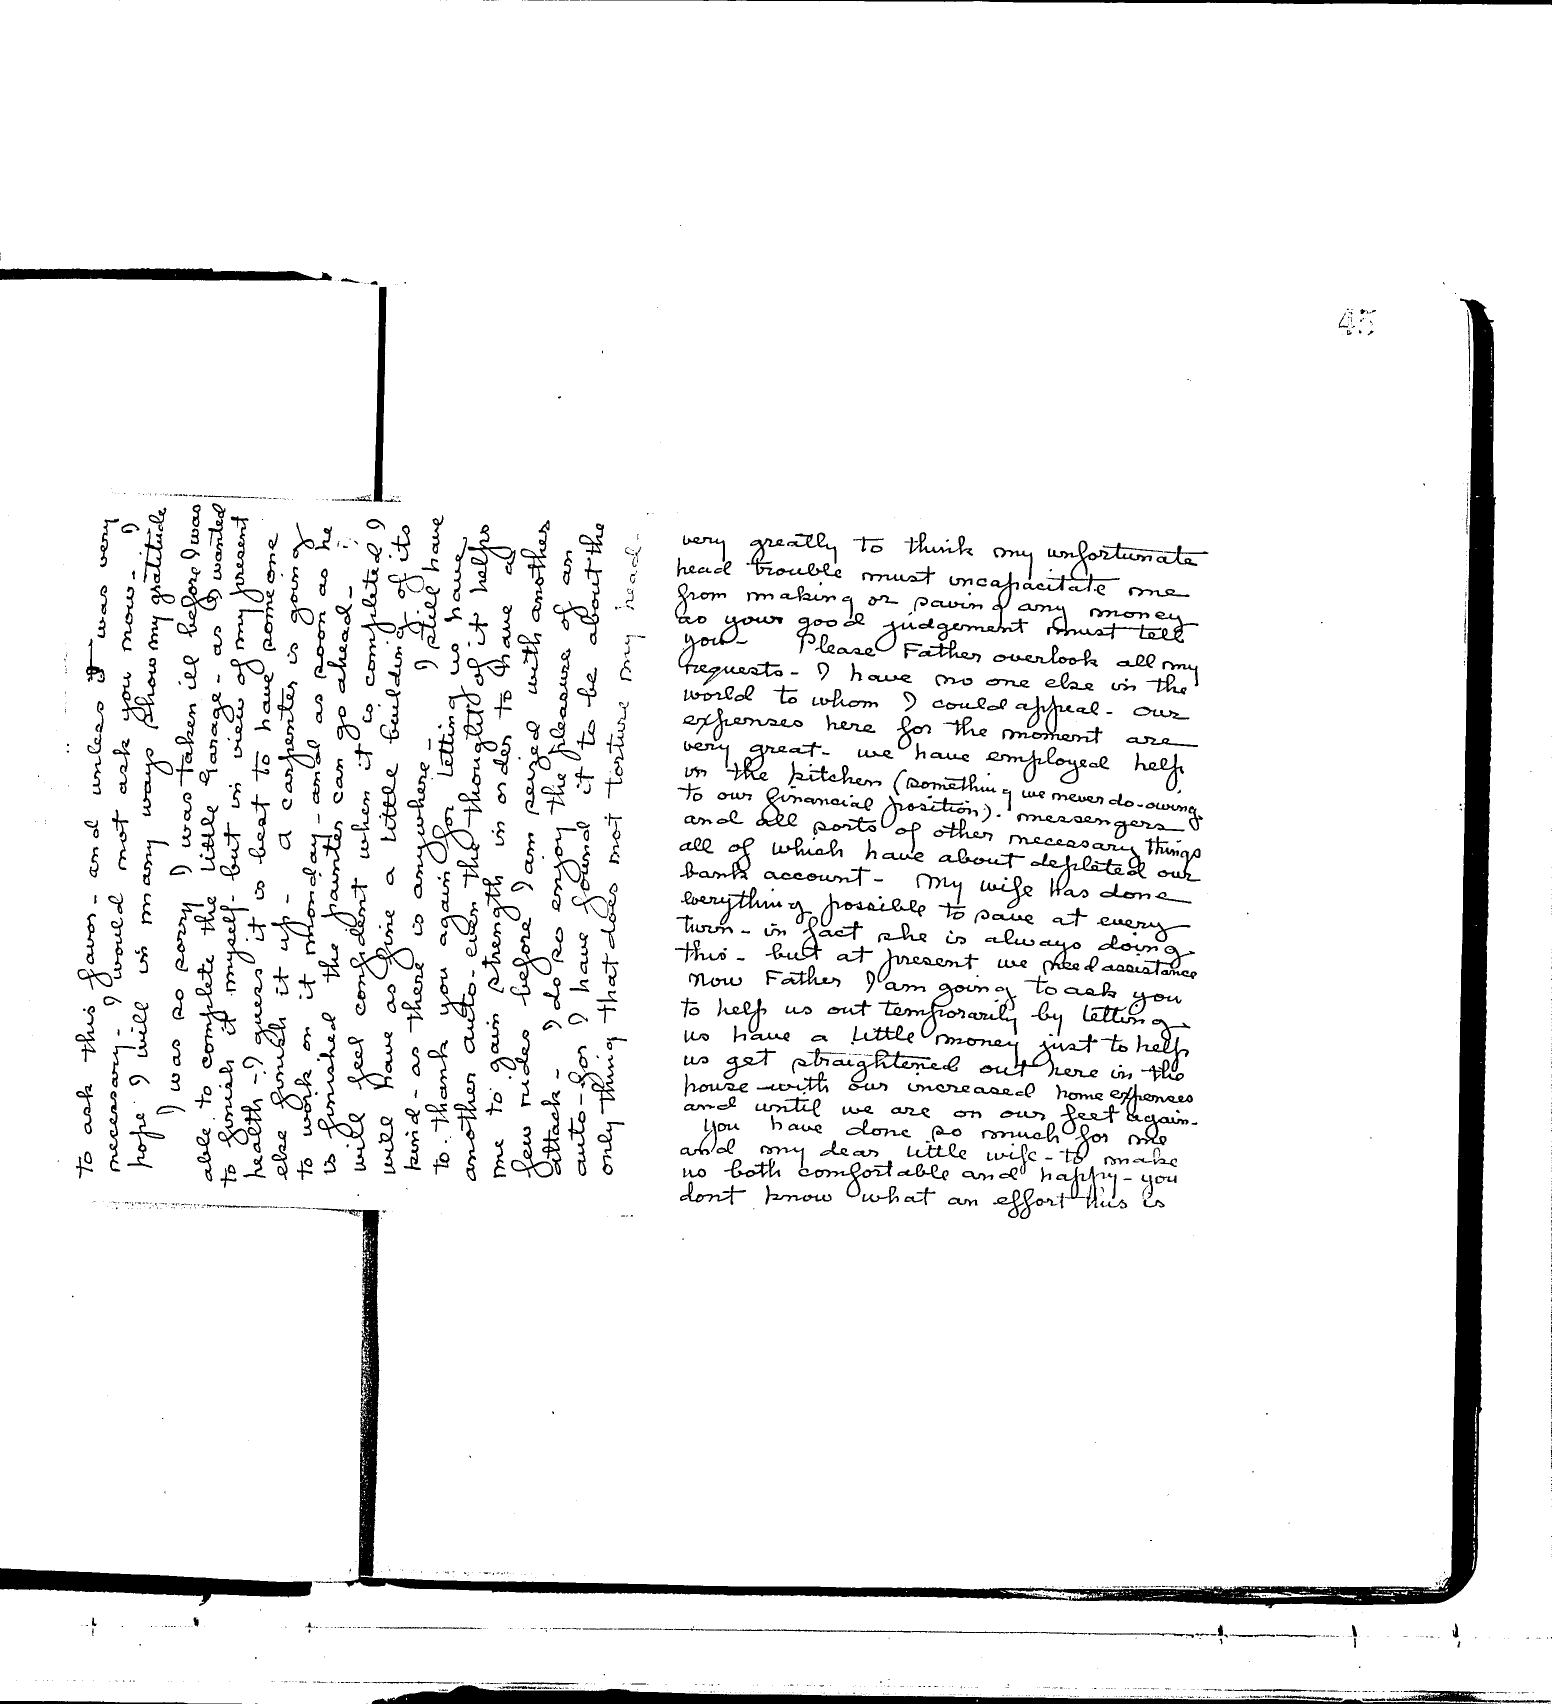 45
very greatly to think my unfortunate
head trouble must incapacitate me
from making or saving any money
as your good judgement must tell
you - Please Father overlook all my
requests - I have no one else in the
world to whom I could appeal - our
expenses here for the moment are
very great - we have employed help
in the kitchen (something we never do - owing
to our financial position) - messengers
and all sorts of other necessary things
all of which have about depleted our
bank account - My wife has done
everything possible to save at every
turn - in fact she is always doing
this - but at present we need assistance
Now Father I am going to ask you
to help us out temporarily by letting
us have a little money just to help
us get straightened out here in the
house - with our increased home expenses
and until we are on our feet again -
You have done so much for me
and my dear little wife - to make
us both comfortable and happy - you
dont know what an effort this is
to ask this favor - and unless it was very
necessary - I would not ask you now - I
hope I will in many ways show my gratitude
I was so sorry I was taken ill before I was
able to complete the little Garage - as I wanted
to finish it myself - but in view of my present
health - I guess it is best to have some one
else finish it up - A carpenter is going
to work on it Monday - and as soon as he
is finished the painter can go ahead -
will feel confident when it is completed I
will have as fine a little building of its
kind - as there is anywhere - I still have
to thank you again for letting us have
another auto - even the thought of it helps
me to gain strength in order to have a
few rides before I am seized with another
attack - I do so enjoy the pleasure of an
auto - for I have found it to be about the
only thing that does not torture my head -